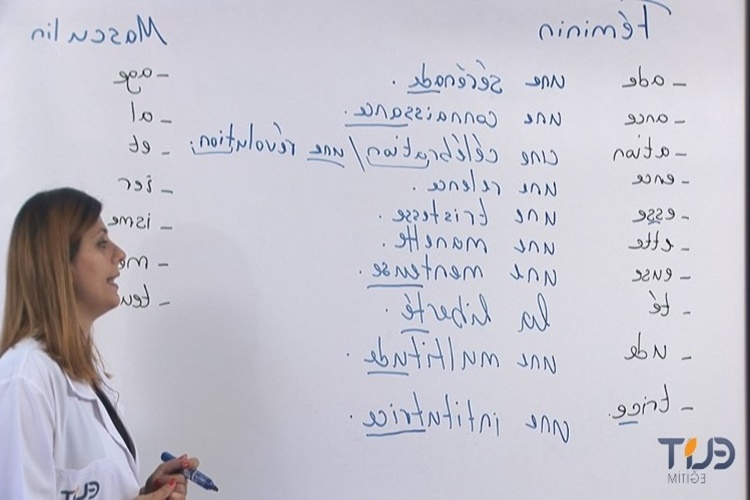 Féminin Masculin
- ade une sérénade. - age
- ance une connaissance. - al
- ation une célébration / une révolution. - et
- ence une relence. - ier
- esse une tristesse. - isme
- ette une manette. - me
- euse une menteuse. - teu
- té la liberté.
- ude une multitude.
- trice. une intitutrice.
EĞİTİM